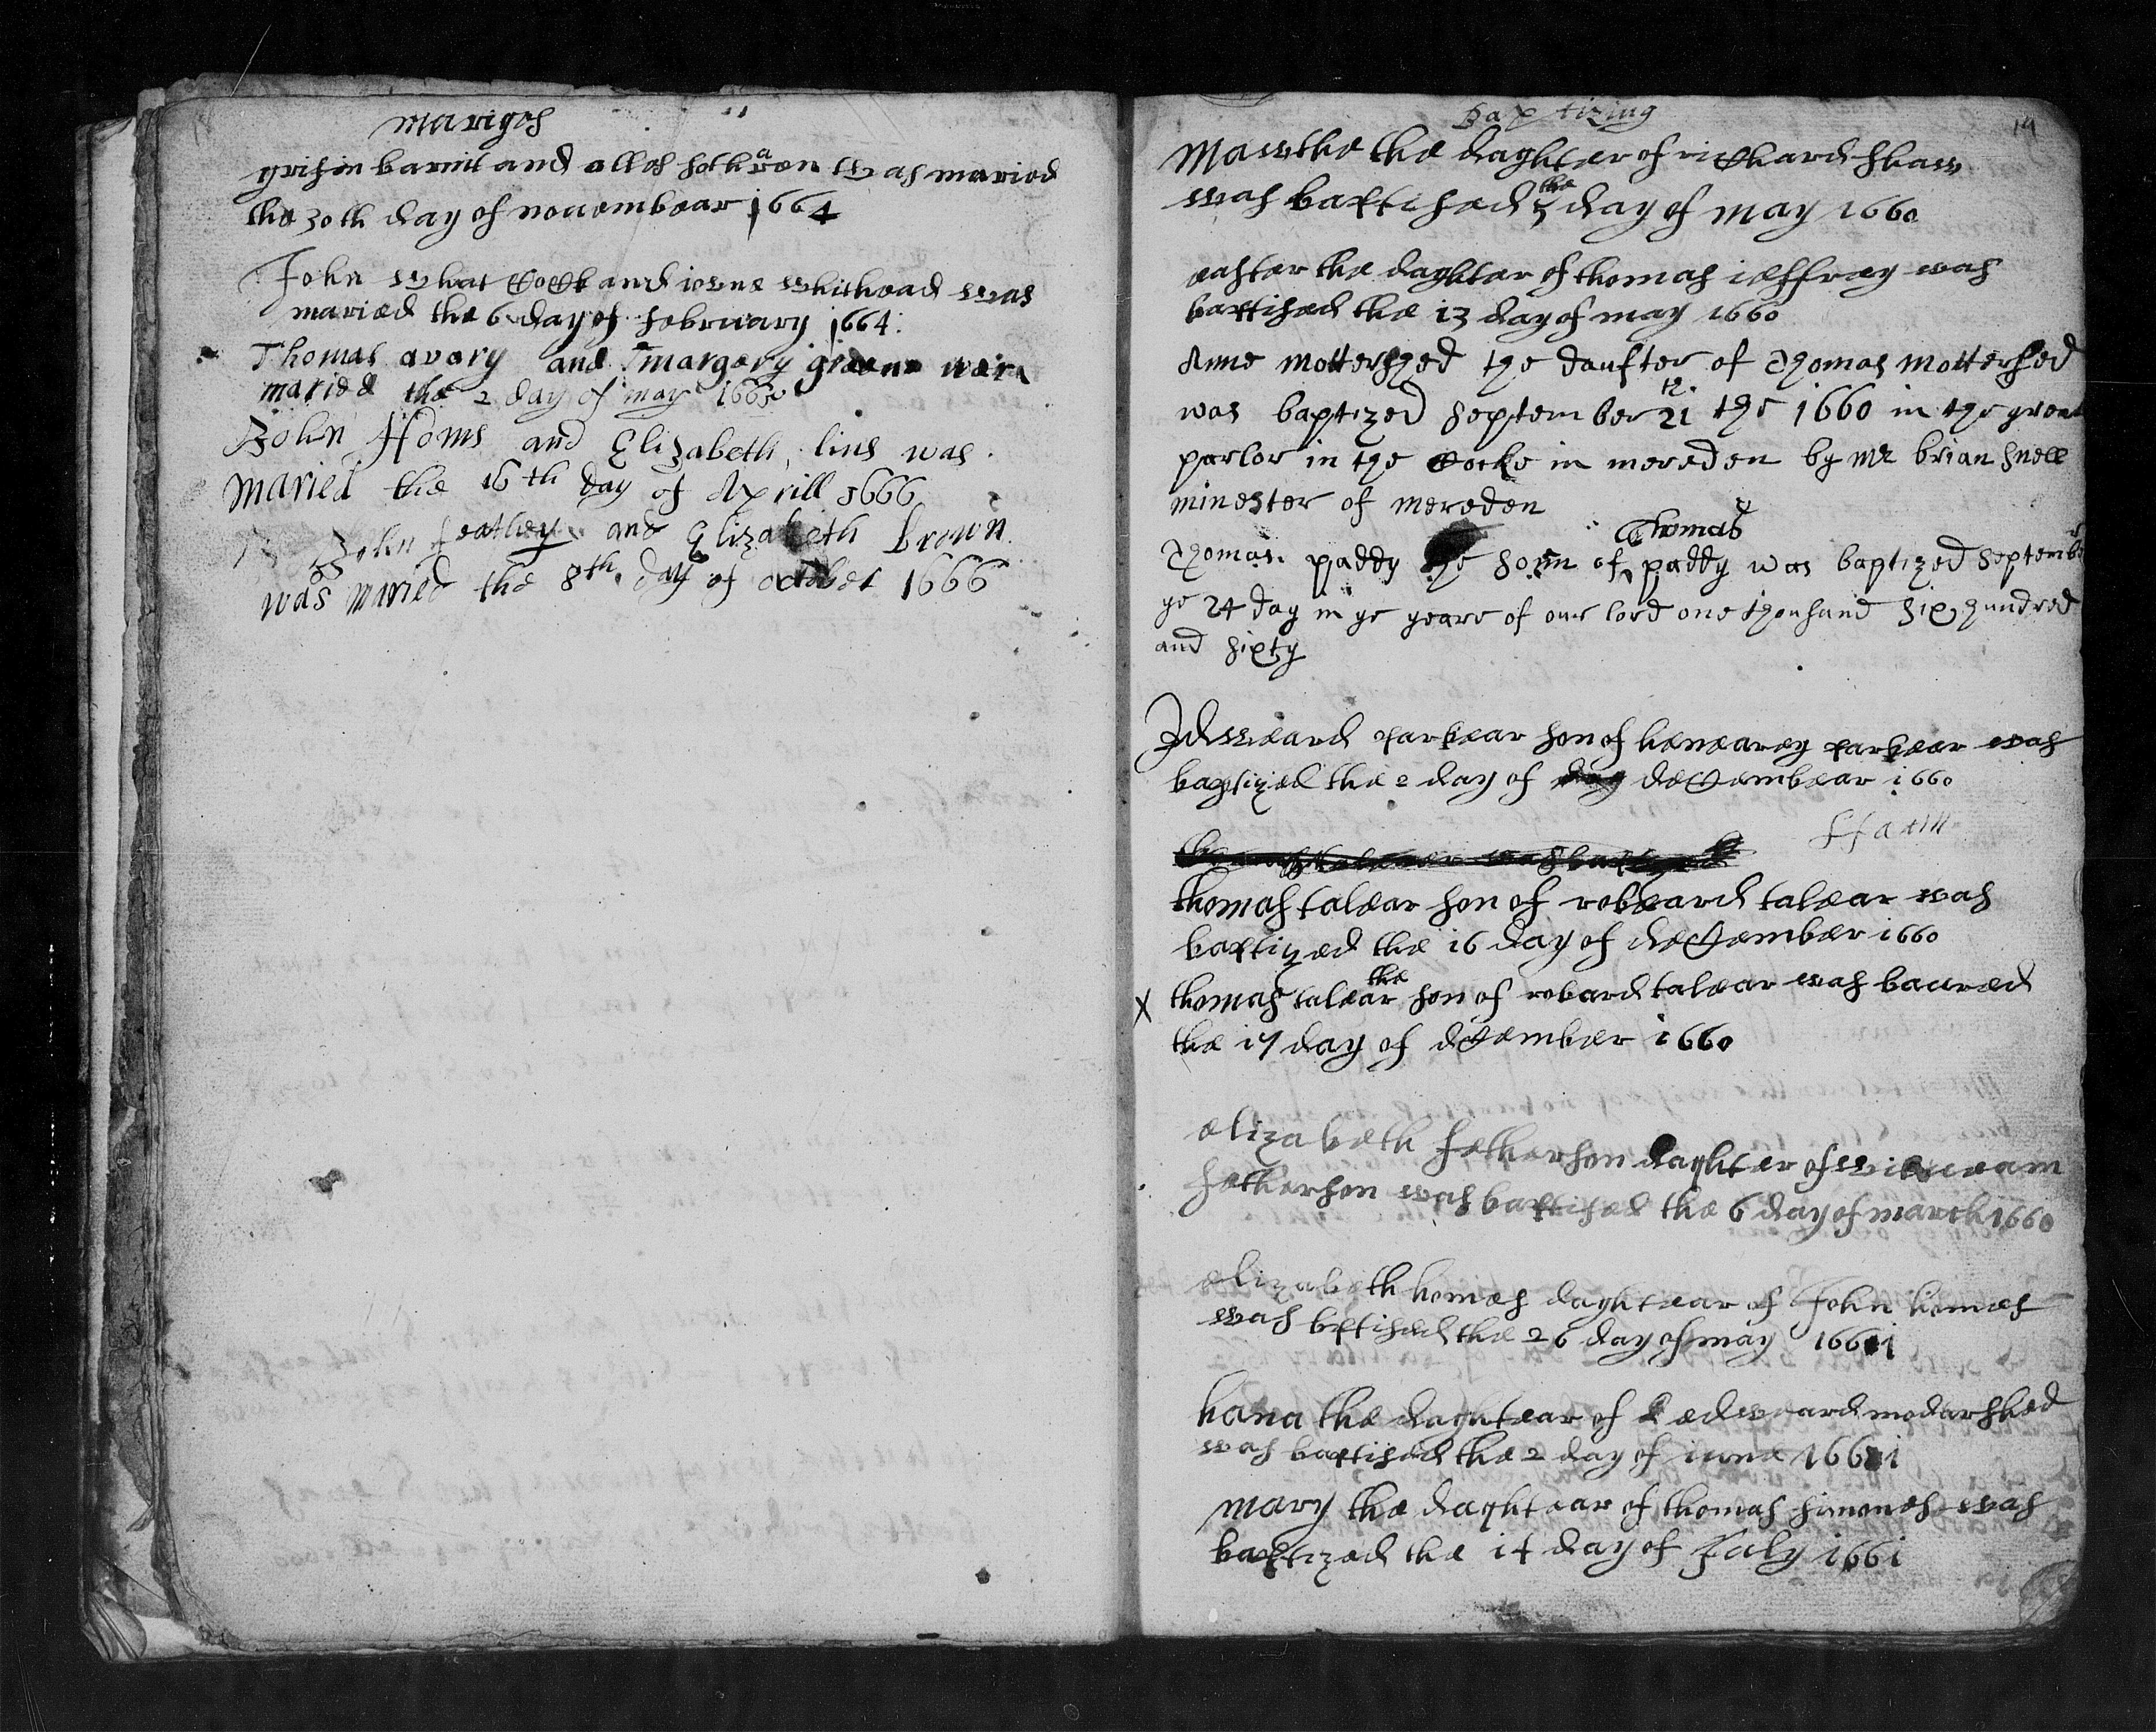 18
mariges
grisin barnit and alles hothraen was maried
the 30th day of nouembear 1664
John what Cock and ione whithead was
maried the 6 day of february 1664
Thomas avary and margery greene weare
maried the 2 day of may 1665
John Homs and Elizabeth lins was
maried the 16th day of Aprill 1666
John featley and Elizabeth Brown
was maried the 8th day of october 1666
baptizing
19
mawthe the daghter of richard shaw
was baptised the 5 day of may 1660
eastar the daghter of thomas ieffrey was
baptised the 13 day of may 1660
Anne mottershed the daufter of Thomas mottershed
was baptized september 21 th the 1660 in the great
parlor in the Cocke in mereden by mr brian snell
minester of mereden
Thomas
Thomas paddy the sonn of paddy was baptized september
ye 24 day in ye yeare of our lord one thousand six hundred
and sixty
Edweard parkear son of henearey parkear was
baptized the 2 day of day decembear 1660
thomas talear son of robeard talear was
baptized the 16 day of decembear 1660
X thomas talear the son of robard talear was baured
the 17 day of dcember 1660
elizabeth fetherson daghter of william
fetherson was baptised the 6 day of march 1660
elizabeth homes daghtear of John homes
was bptised the 26 day of may 1661
hana the daghtear of edweard modarshed
was baptised the 2 day of iune 1661
mary the daghtear of thomas simones was
baptized the 14 day of July 1661